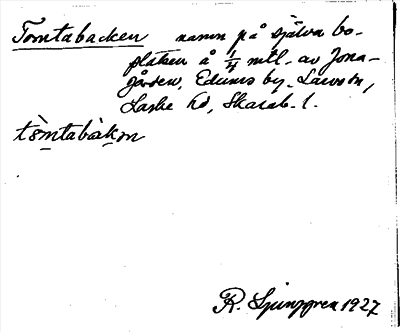 Tomtabacken namn på själva bo-
platsen å 1/4 mtl. av Jona-
gården, Edums by. Larvs sn,
Laske hd, Skarab. l.
tòmtabàkən
R. Ljunggren 1927